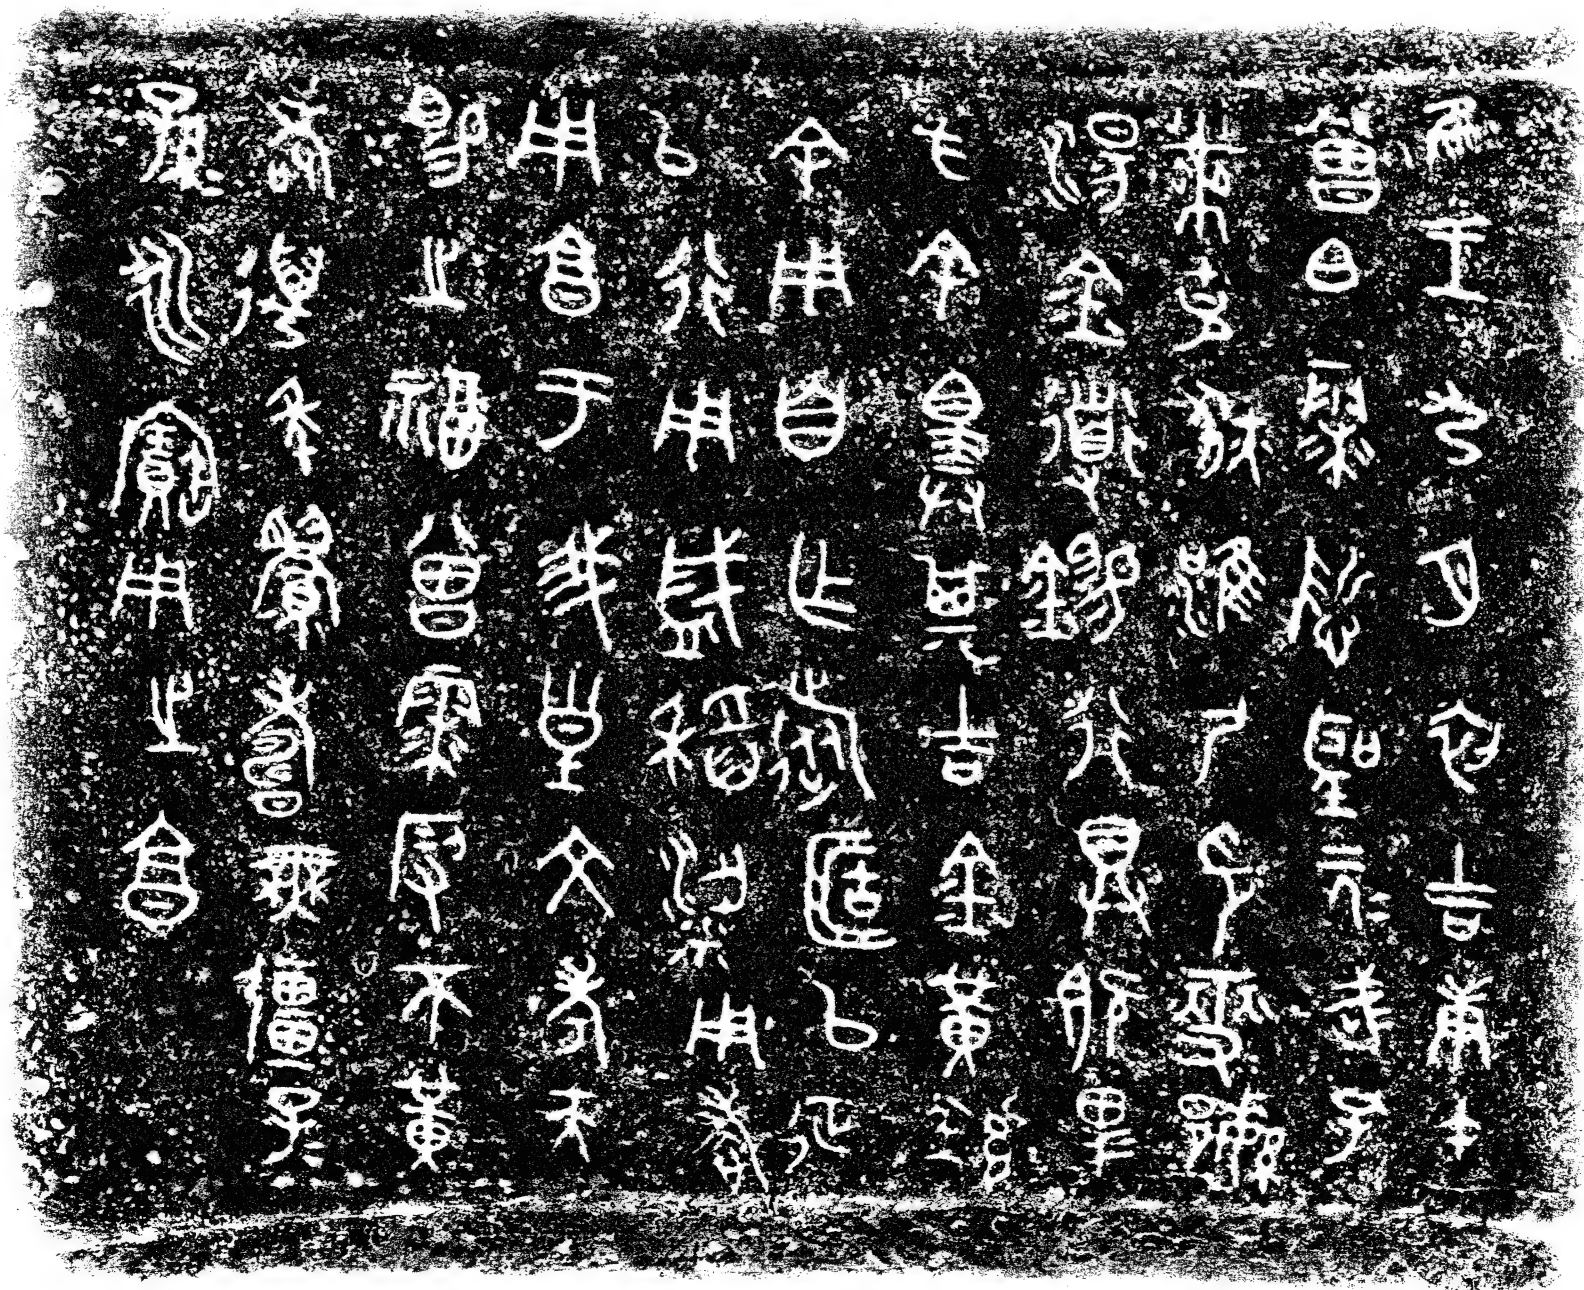 隹王九月初吉庚午
曾白霥哲聖元=武=孔
黹克狄淮尸印燮繁
湯金道錫行具既卑
方余擇其吉金黃鑪
余用自乍旅簠以征
以行用盛稻粱用孝
用亯于我皇文考天
賜之福曾霥叚不黃
耇萬年眉壽無疆子=
孫=永寶用之亯